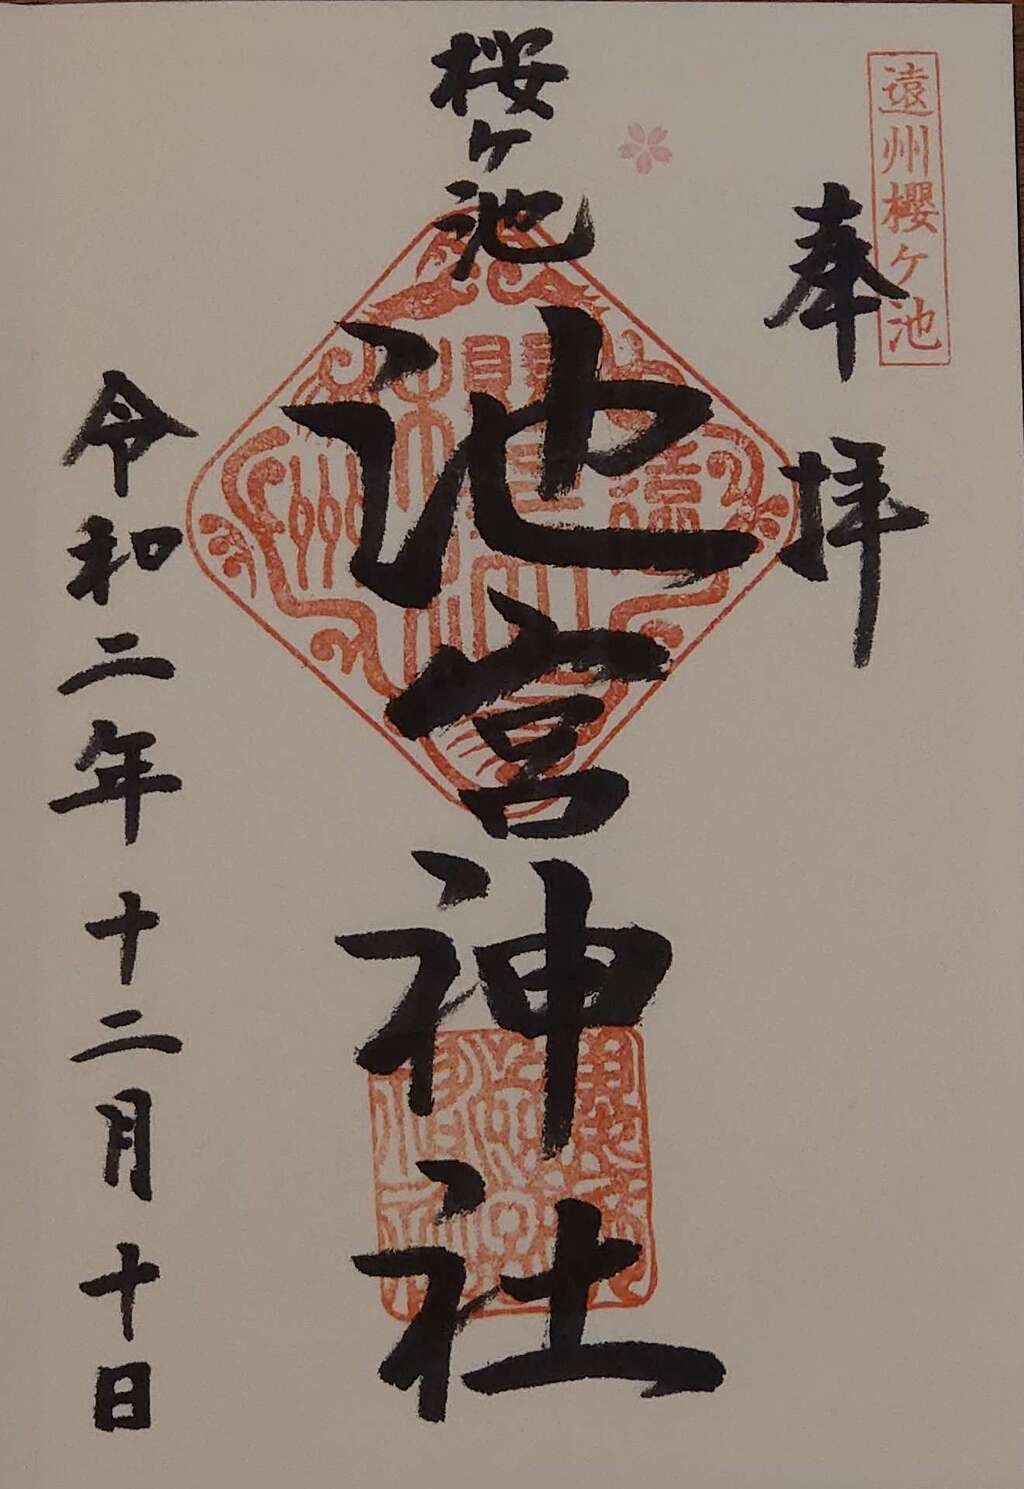 遠州櫻ヶ池
奉拝
桜ヶ池
池宮神社
令和二年十二月十日